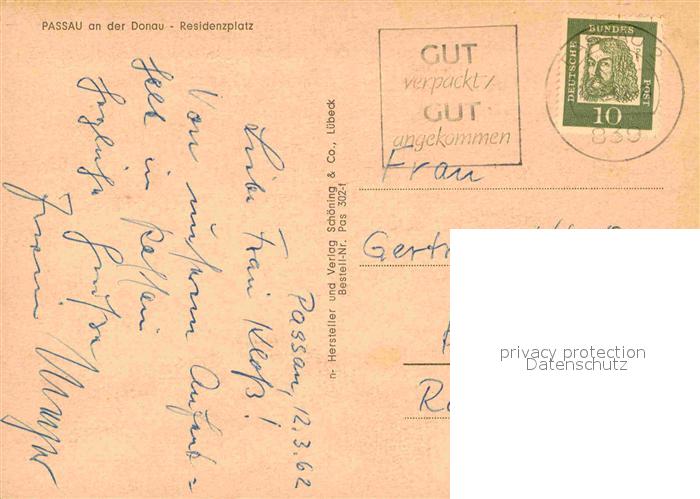 PASSAU an der Donau - Residenzplatz
GUT
verpackt /
GUT
angekommen
DEUTSCHE BUNDES POST
10
839
Passau, 12.3.62
Liebe Frau Kloß!
Von unserem Aufent=
halt in Passau
herzliche Grüße
Ihre
n- Hersteller und Verlag Schöning & Co., Lübeck
Bestell-Nr. Pas 302-f
Frau
privacy protection
Datenschutz